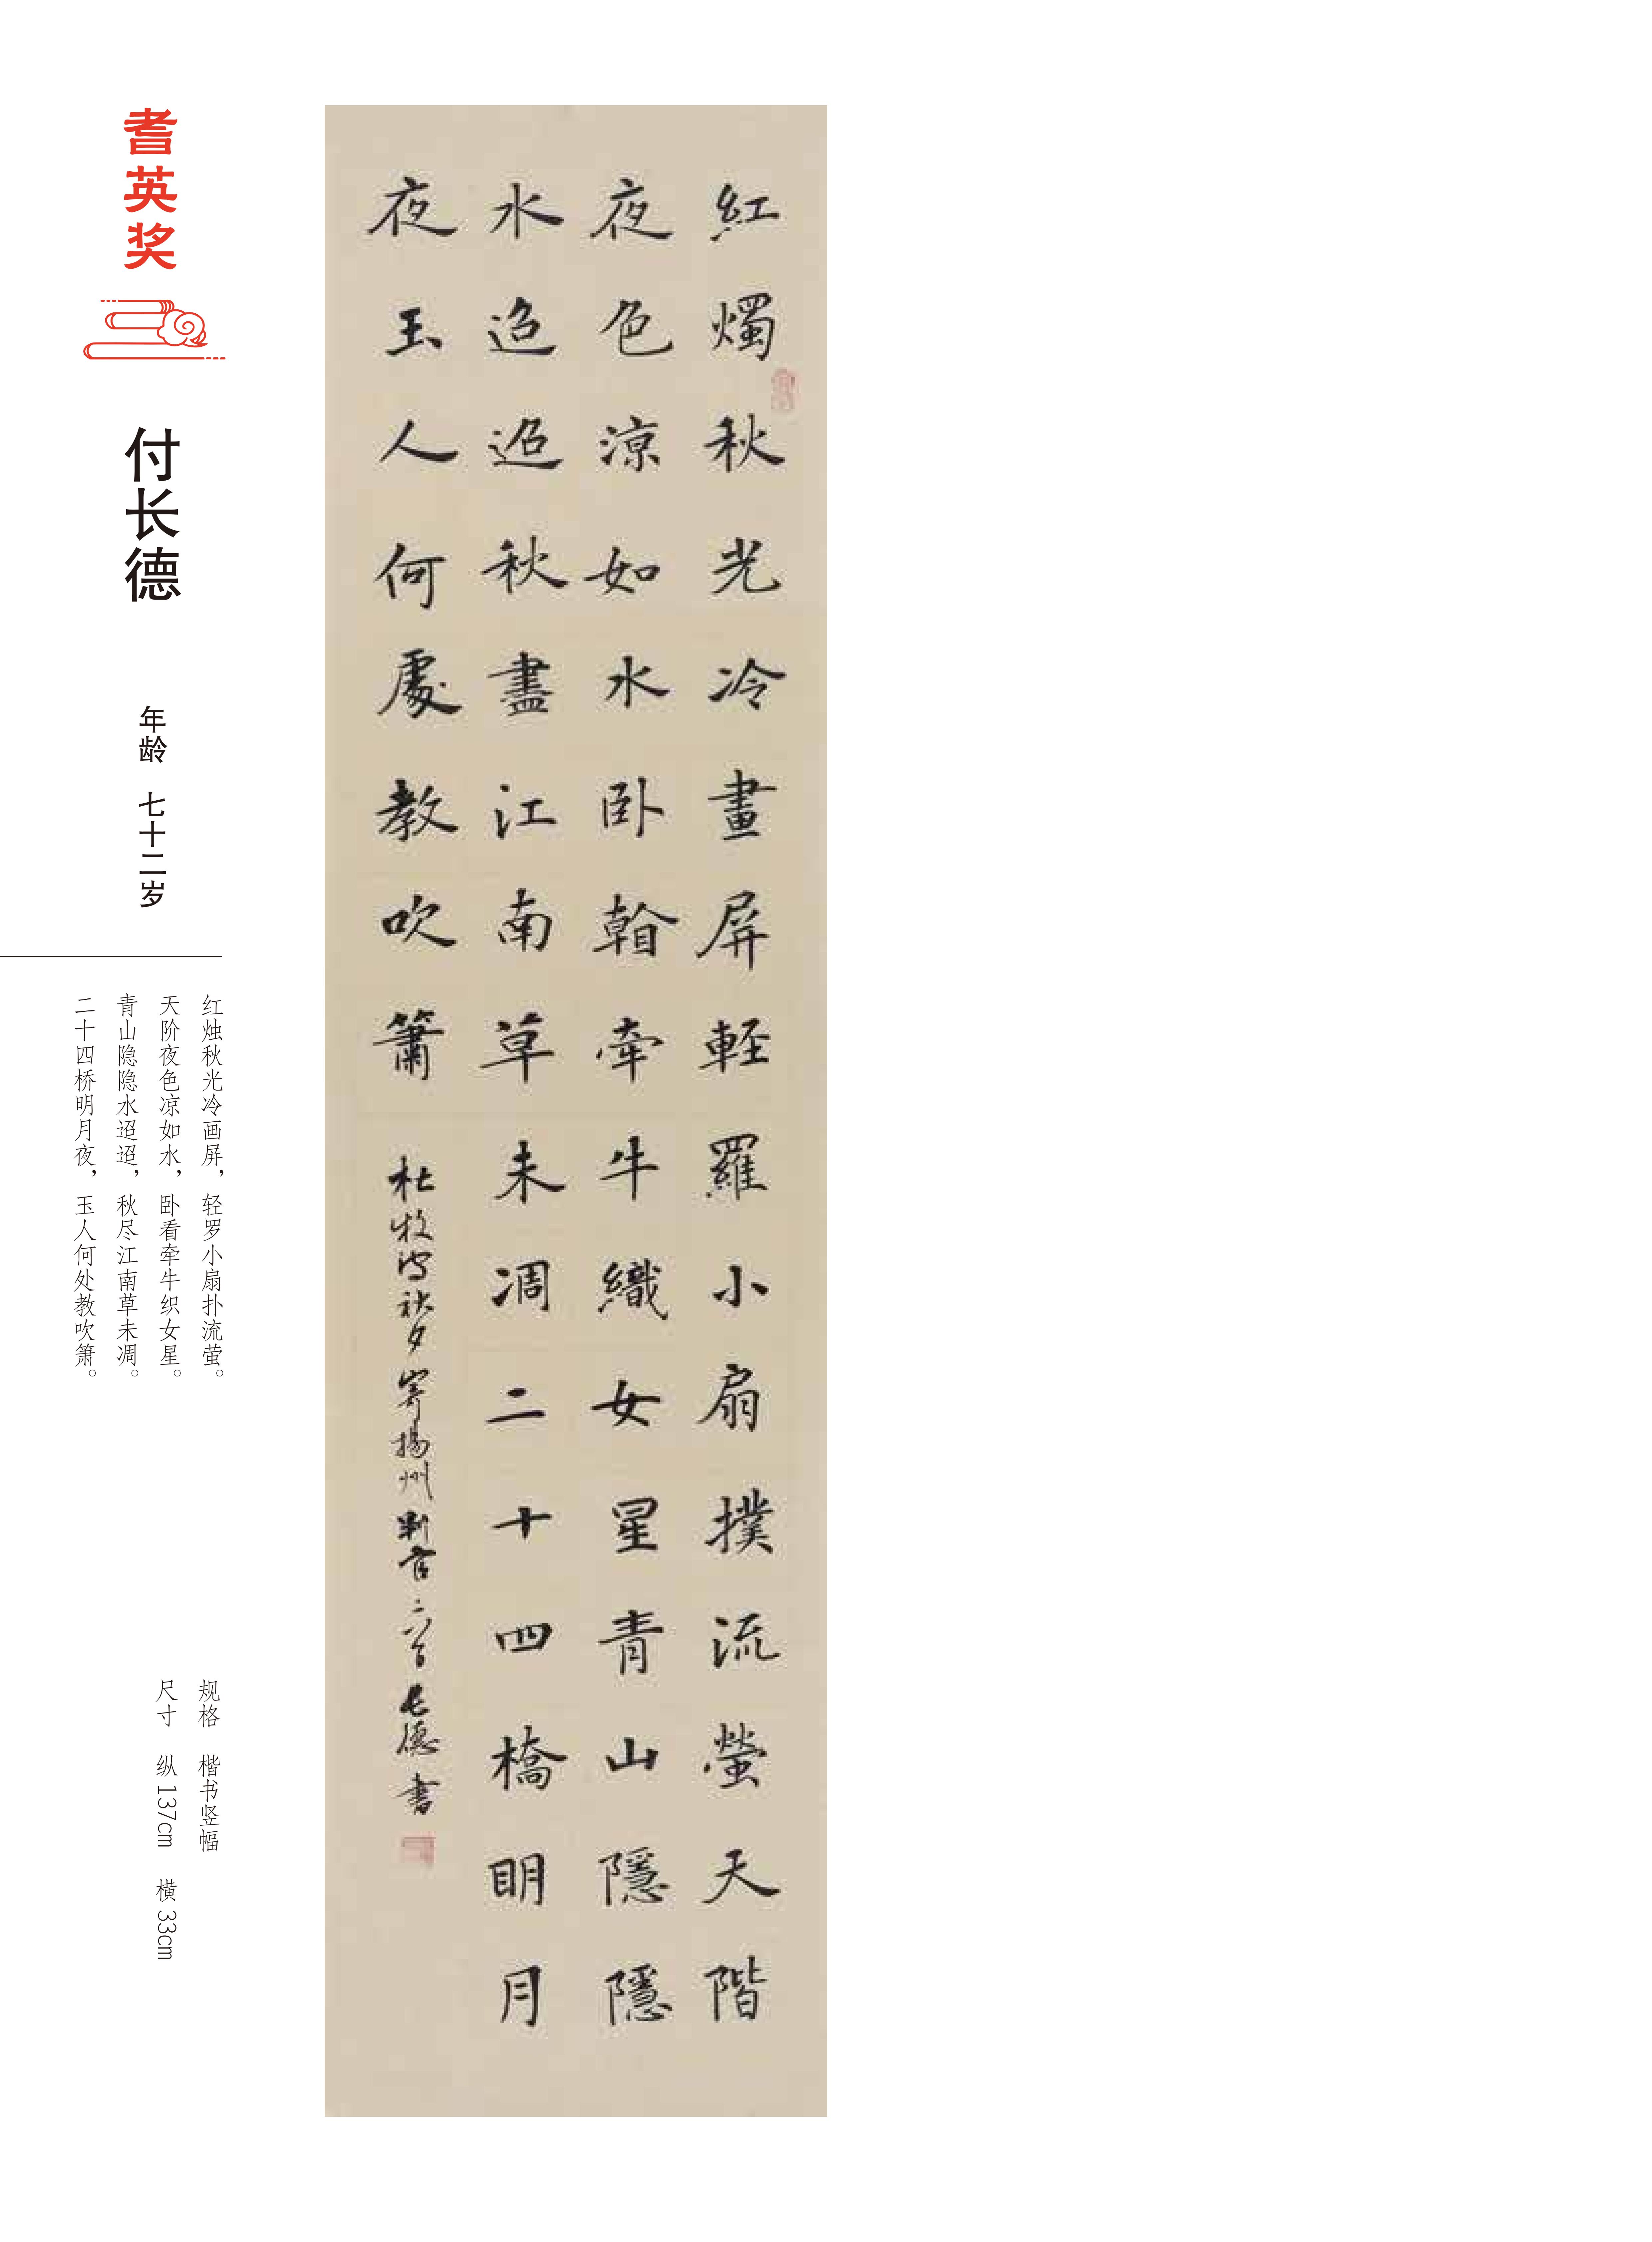 耆英奖
付长德
年龄 七十二岁
红烛秋光冷画屏，轻罗小扇扑流萤。
天阶夜色凉如水，卧看牵牛织女星。
青山隐隐水迢迢，秋尽江南草未凋。
二十四桥明月夜，玉人何处教吹箫。
规格 楷书竖幅
尺寸 纵137cm 横33cm
紅燭秋光冷畫屏輕羅小扇撲流螢天階
夜色涼如水卧翰牽牛織女星青山隱隱
水迢迢秋盡江南草未凋二十四橋明月
夜玉人何處教吹簫
杜牧 秋夕 寄揚州判官二首 長德書